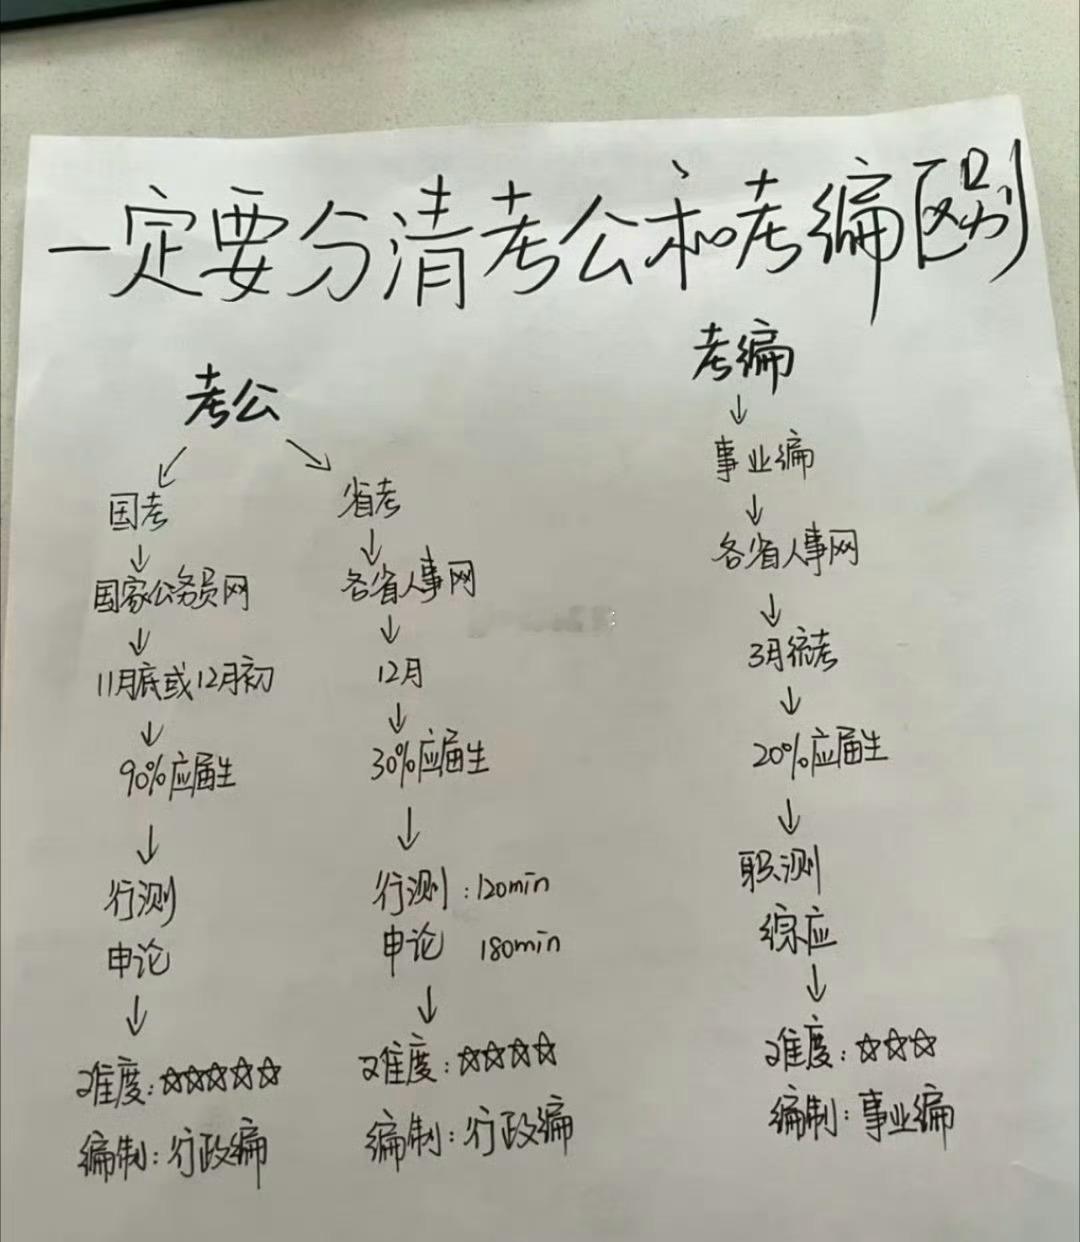 一定要分清考公和考编区别
考公
国考
国家公务员网
11月底或12月初
90%应届生
行测
申论
难度:☆☆☆☆☆
编制:行政编
省考
各省人事网
12月
30%应届生
行测:120min
申论 180min
难度:☆☆☆☆
编制:行政编
考编
事业编
各省人事网
3月统考
20%应届生
职测
综应
难度:☆☆☆
编制:事业编